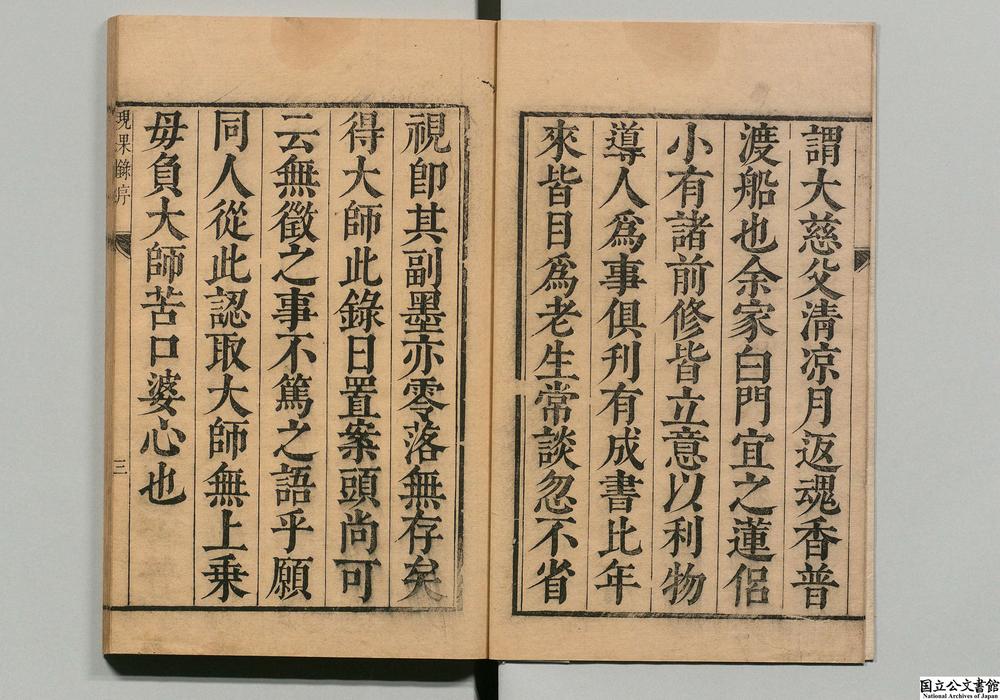 謂大慈父清凉月返魂香普
渡船也余家白門宜之蓮侶
小有諸前修皆立意以利物
導人爲事俱刊有成書比年
來皆目爲老生常談忽不省
視卽其副墨亦零落無存矣
得大師此錄日置案頭尚可
云無徵之事不篤之語乎願
同人從此認取大師無上乗
毋負大師苦口婆心也
現果錄序
三
国立公文書館
National Archives of Japan